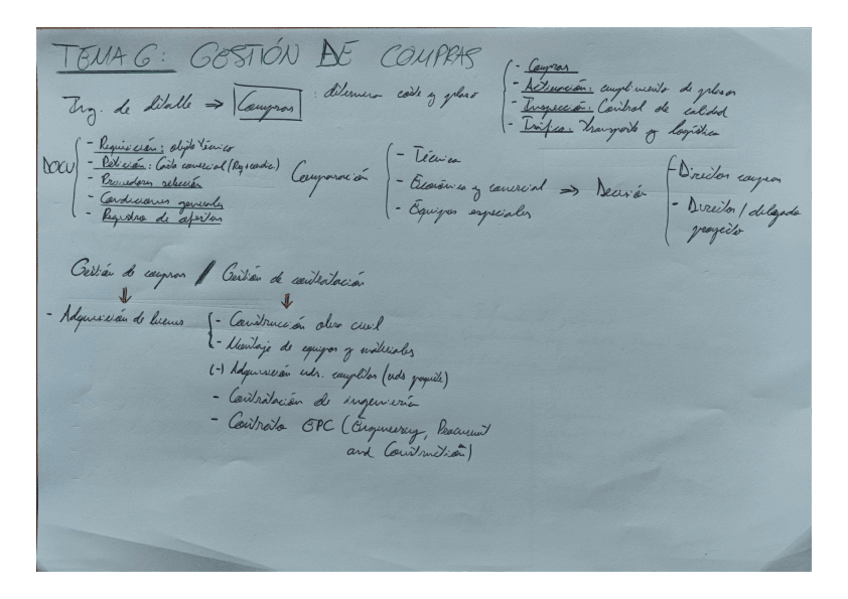 TEMA 6: GESTIÓN DE COMPRAS
Ing. de detalle ⇒ Compras : dilema coste y plazo
- Compras
- Activación: cumplimiento de plazos
- Inspección: Control de calidad
- Tráfico: Transporte y logística
DOCU
- Requisición: objeto técnico
- Petición: Carta comercial
- Proveedores selección
- Condiciones generales
- Registro de ofertas
Comparación
- Técnica
- Económica y comercial
- Equipos especiales
⇒ Decisión
- Director compras
- Director / delegado
proyecto
Gestión de compras / Gestión de contratación
- Adquisición de bienes
- Construcción obra civil
- Montaje de equipos y materiales
(-) Adquisición uds. completas (uds paquete)
- Contratación de ingeniería
- Contrato EPC (Engineering, Procurement
and Construction)